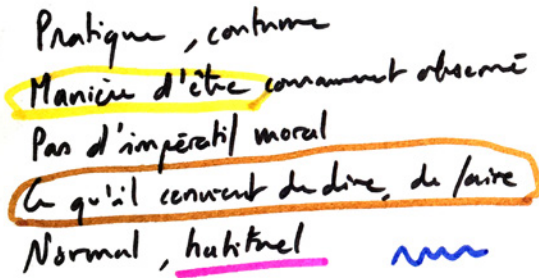 Pratique, coutume
Manière d'être couramment observé
Pas d'impératif moral
Ce qu'il convient de dire, de faire
Normal, habituel